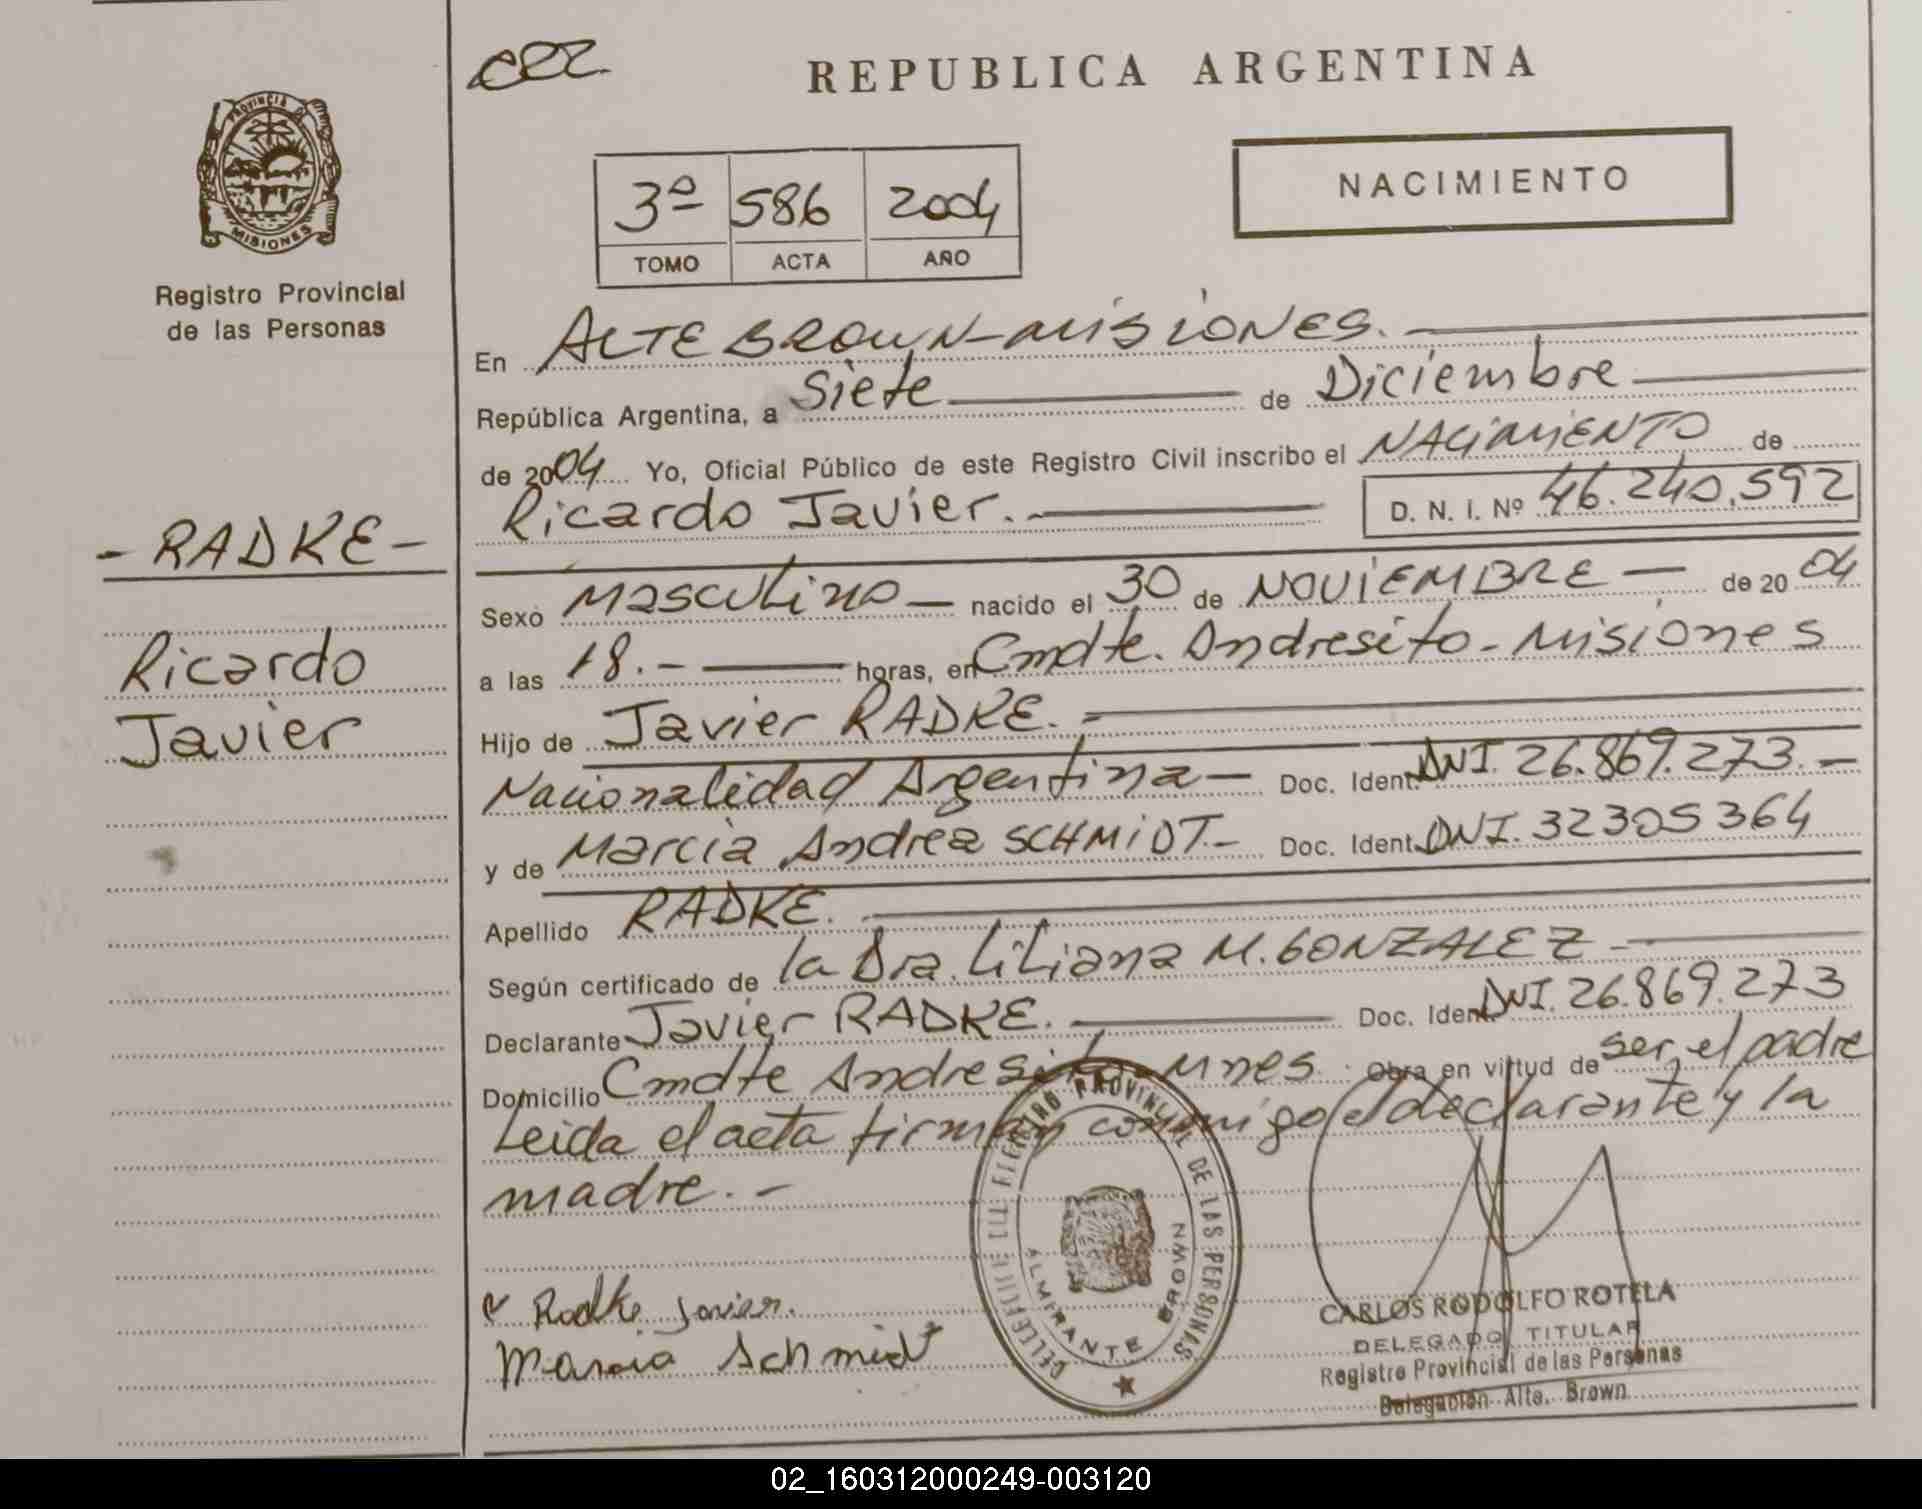 REPUBLICA ARGENTINA
PROVINCIA DE
MISIONES
Registro Provincial
de las Personas
3º 586 2004
TOMO ACTA AÑO
NACIMIENTO
En ALTE BROWN-MISIONES.
República Argentina, a Siete de Diciembre
de 2004 Yo, Oficial Público de este Registro Civil inscribo el NACIMIENTO de
Ricardo Javier. D. N. I. Nº 46.240.592
- RADKE -
Ricardo
Javier
Sexo Masculino nacido el 30 de NOVIEMBRE de 20 04
a las 18.- horas, en Cmdte. Andresito - Misiones
Hijo de Javier RADKE.
Nacionalidad Argentina Doc. Ident. DNI. 26.869.273.
y de Marcia Andrea SCHMIDT. Doc. Ident. DNI. 32305364
Apellido RADKE.
Según certificado de la Dra. Liliana M. GONZALEZ
Declarante Javier RADKE. Doc. Ident. DNI. 26.869.273
Domicilio Cmdte Andresito - Mnes. Obra en virtud de ser el padre
Leida el acta firman conmigo el declarante y la
madre.-
Radke Javier.
Marcia Schmidt
REGISTRO PROVINCIAL DE LAS PERSONAS
ALMIRANTE BROWN
CARLOS RODOLFO ROTELA
DELEGADO TITULAR
Registro Provincial de las Personas
Delegación Alte. Brown
02_160312000249-003120